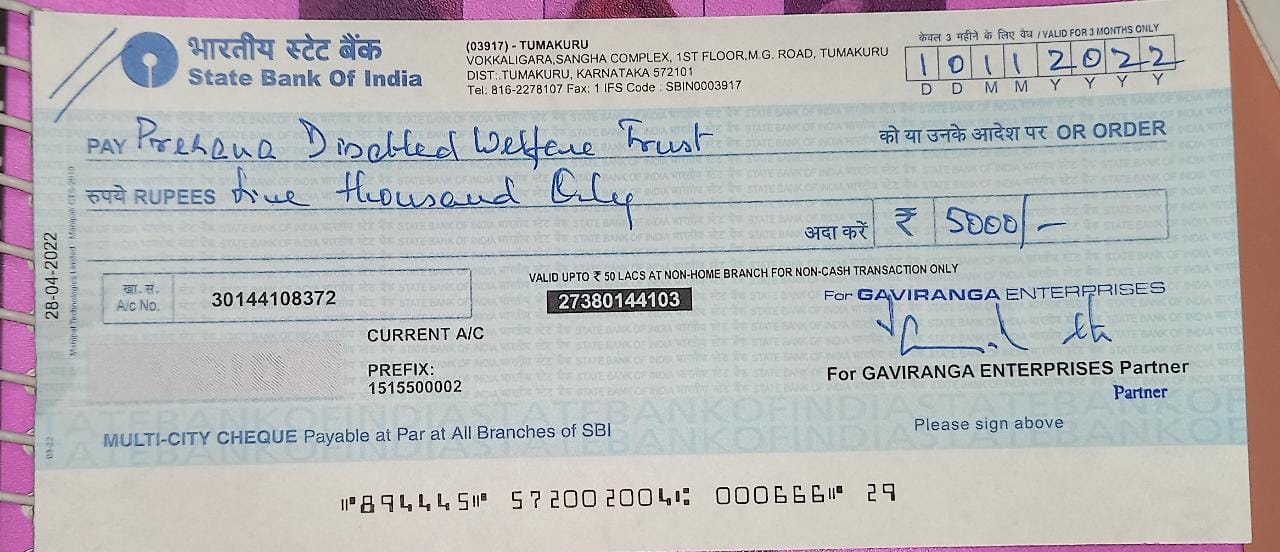 भारतीय स्टेट बैंक
State Bank Of India
(03917) - TUMAKURU
VOKKALIGARA,SANGHA COMPLEX, 1ST FLOOR,M.G. ROAD, TUMAKURU
DIST:.TUMAKURU, KARNATAKA 572101
Tel: 816-2278107 Fax: 1 IFS Code : SBIN0003917
केवल 3 महीने के लिए वैध / VALID FOR 3 MONTHS ONLY
10112022
D D M M Y Y Y Y
PAY Prerana Disabled Welfare Trust को या उनके आदेश पर OR ORDER
रुपये RUPEES five thousand Only
अदा करें ₹ 5000/-
28-04-2022
Manipal Technologies Limited - Manipal CTS-2010
खा. सं.
A/c No. 30144108372
VALID UPTO ₹ 50 LACS AT NON-HOME BRANCH FOR NON-CASH TRANSACTION ONLY
27380144103
For GAVIRANGA ENTERPRISES
CURRENT A/C
PREFIX:
1515500002
For GAVIRANGA ENTERPRISES Partner
Partner
Please sign above
MULTI-CITY CHEQUE Payable at Par at All Branches of SBI
STATE BANK OF INDIA STATE BANK OF INDIA
⑈894445⑈ 572002004⑆ 000666⑈ 29